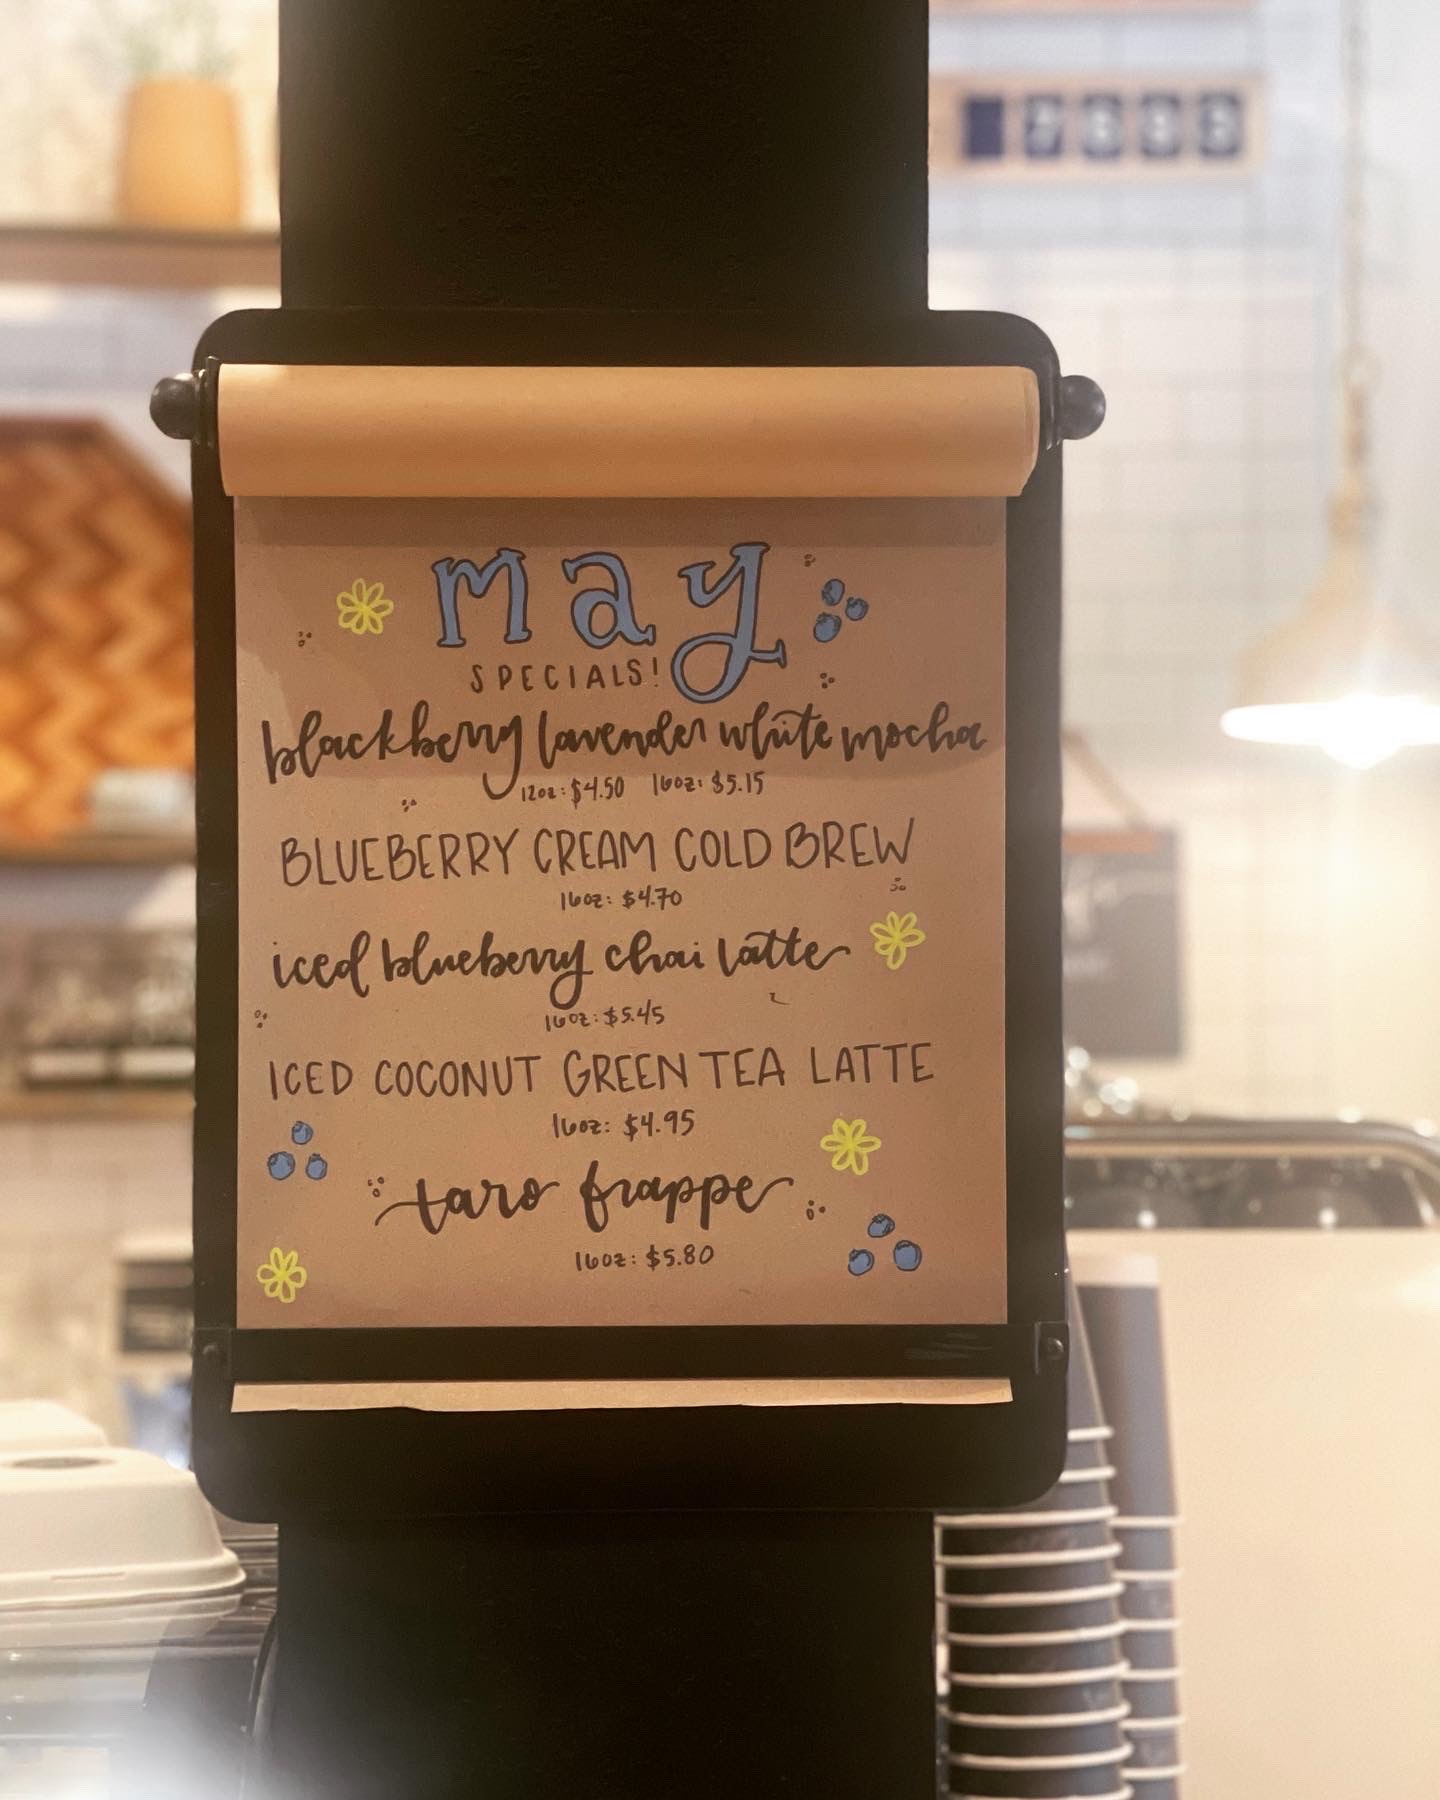 may
SPECIALS!
blackberry lavender white mocha
12oz: $4.50 16oz: $5.15
BLUEBERRY CREAM COLD BREW
16oz: $4.70
iced blueberry chai latte
16oz: $5.45
ICED COCONUT GREEN TEA LATTE
16oz: $4.95
taro frappe
16oz: $5.80